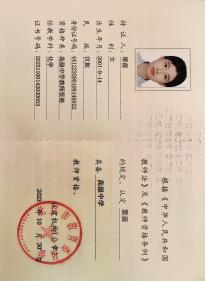 持 证 人：栗茵
性　　别：女
出生年月：2001-9-14
民　　族：汉族
身份证号码：
资格种类：高级中学教师资格
任教学科：化学
证书号码：
根据《中华人民共和国
教师法》及《教师资格条例》
的规定，认定 栗茵
具备 高级中学
教师资格。
认定机构(公章)
2023 年 10 月 30 日